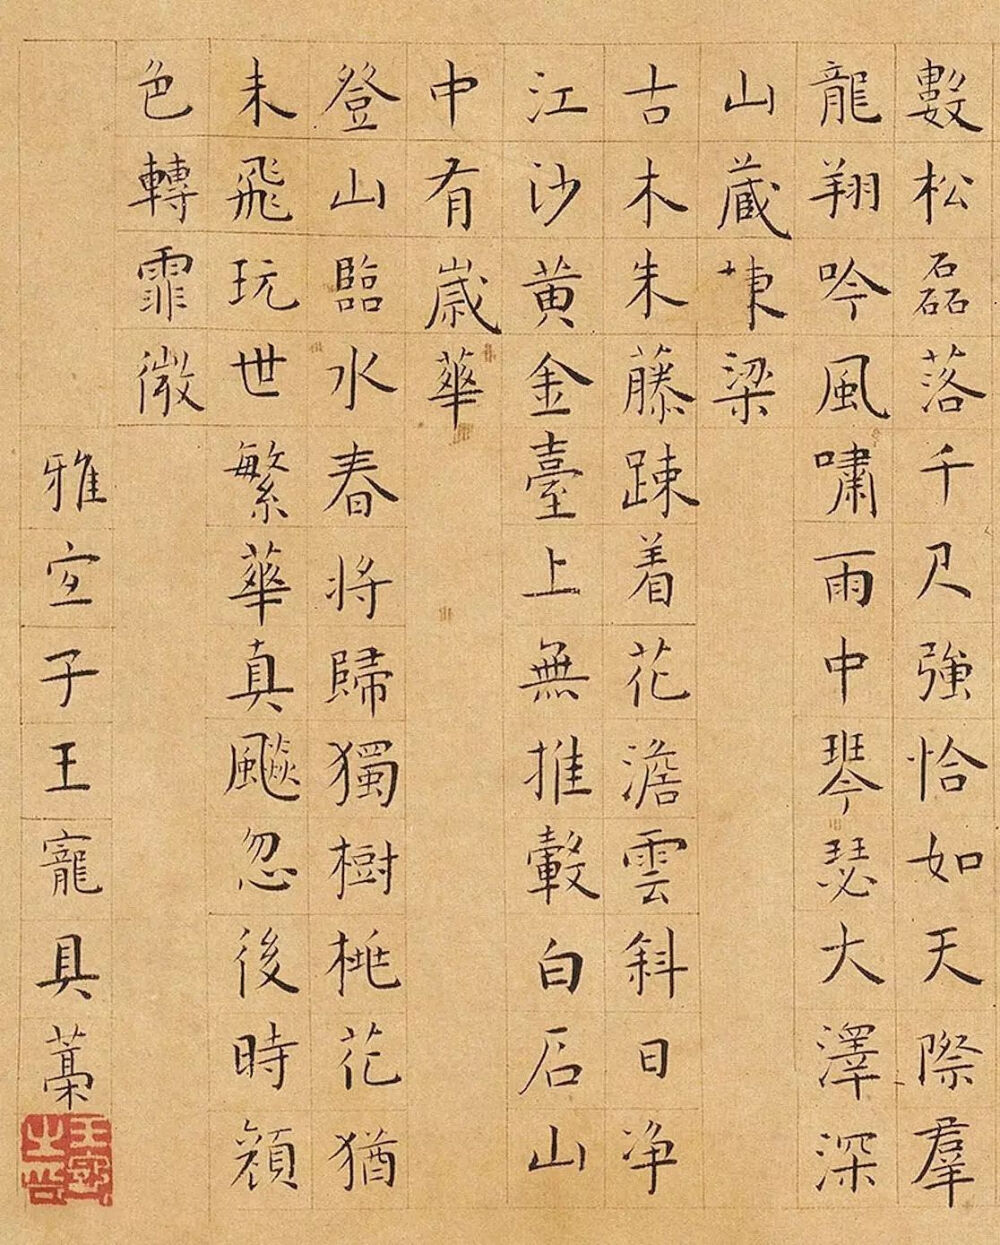 數松磊落千尺強恰如天際羣
龍翔吟風嘯雨中琴瑟大澤深
山蔵棟梁
古木朱藤踈着花澹雲斜日净
江沙黄金臺上無推轂白石山
中有歳華
登山臨水春將歸獨樹桃花猶
未飛玩世繁華真飈忽後時顔
色轉霏微
雅宜子王寵具藁
王寵之印